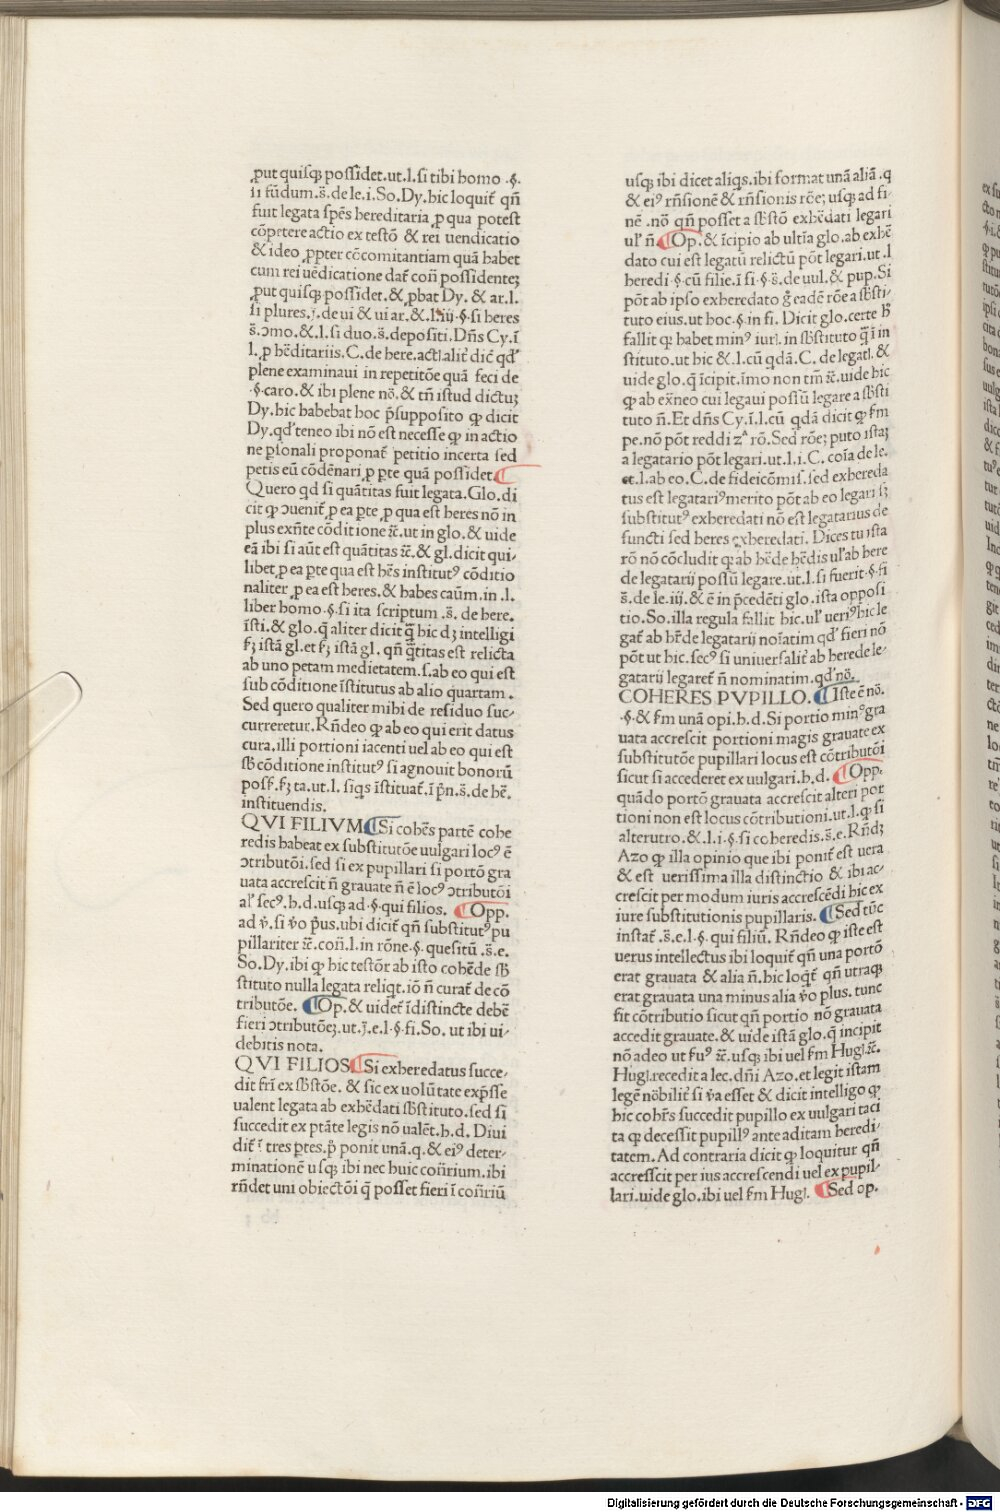 ꝓut quiſqꝫ poſſidet.ut.l.ſi tibi homo .§.
ſi fūdum.s̄.de le.i.So.Dy.hic loquit᷑ qn̄
fuit legata ſpēs hereditaria ꝓ qua poteſt
cōpetere actio ex teſtō & rei uendicatio
& ideo ꝓpter cōcomitantiam quā habet
cum rei uēdicatione dat᷑ con̄ poſſidenteꝫ
ꝓut quiſqꝫ poſſidet.& ꝓbat Dy. & ar.l.
ſi plures.j.de ui & ui ar.& .l.iij.§.ſi heres
s̄.ↄmo.&.l.ſi duo.s̄.depoſiti.Dn̄s Cy.ī
l.ꝓ hēditariis.C.de here.act.l.alit᷑ dic̄ qd'
plene examinaui in repetitōe quā feci de
.§.caro.& ibi plene nō.& tn̄ iſtud dictuꝫ
Dy.hic habebat hoc p̄ſuppoſito ꝙ dicit
Dy.qd'teneo ibi nō eſt neceſſe ꝙ in actio
ne pſonali proponat᷑ petitio incerta ſed
petis eū cōdēnari ꝓ pte quā poſſidet.
Quero qd ſi quātitas fuit legata.Glo.di
cit ꝙ ↄuenit᷑ ꝓ ea pte ꝓ qua eſt heres nō in
plus exn̄te cōditione ⁊c̄.ut in glo.& uide
eā ibi ſi aūt eſt quātitas ⁊c̄.& gl.dicit qui-
libet ꝓ ea pte qua eſt hēs inſtitutꝰ cōditio
naliter ꝓ ea eſt heres.& habes caūm.in .l.
liber homo.§.ſi ita ſcriptum .s̄. de here.
īſti.& glo.q̄ aliter dicit q̄ hic dꝫ intelligi
ẜꝫ iſtā gl.et ẜꝫ iſtā gl. qn̄ q̄titas eſt relicta
ab uno petam medietatem.ſ.ab eo qui eſt
ſub cōditione īſtitutus ab alio quartam .
Sed quero qualiter mihi de reſiduo ſuc-
curreretur.Rn̄deo ꝙ ab eo qui erit datus
cura.illi portioni iacenti uel ab eo qui eſt
ſƀ cōditione inſtitutꝰ ſi agnouit bonorū
poſſ.ẜꝫ ta.ut.l. ſiqs īſtituat᷑.ī pn̄.s̄.de hē.
inſtituendis.
QVI FILIVM ¶Si cohēs partē cohe
redis habeat ex ſubſtitutōe uulgari locꝰ ē
ↄtributōi.ſed ſi ex pupillari ſi portō gra
uata accreſcit n̄ grauate n̄ ē locꝰ ↄtributōi
al' ſecꝰ.h.d.uſqꝫ ad.§.qui filios. ¶Opp.
ad v̄.ſi v̄o p̄us.ubi dicit᷑ qn̄ ſubſtitutꝰ pu
pillariter ⁊c̄.con̄.l.in rōne.§.queſitū .s̄.e.
So.Dy.ibi ꝙ hic teſtōr ab iſto cohēde ſƀ
ſtituto nulla legata reliqt.iō n̄ curat᷑ de cō
tributōe. ¶Op.& uidet᷑ īdiſtincte debē
fieri ↄtributōeꝫ.ut.j.e.l.§.fi.So. ut ibi ui-
debitis nota.
QVI FILIOS ¶Si exheredatus ſucce-
dit fr̄i ex ſƀſtōe. & ſic ex uolūtate exp̄ſſe
ualent legata ab exhēdati ſƀſtituto.ſed ſi
ſuccedit ex ptāte legis nō ualēt.h.d. Diui
dit᷑ ī tres ptes.p̄ ponit unā.q.& eiꝰ deter-
minationē uſqꝫ ibi nec huic con̄rium.ibi
rn̄det uni obiectōi q̄ poſſet fieri ī con̄riū
uſqꝫ ibi dicet aliqs.ibi format unā aliā .q
& eiꝰ rn̄ſionē & rn̄ſionis rōe; uſqꝫ ad fi-
nē .nō qn̄ poſſet a ſƀſtō exhēdati legari
ul' n̄. ¶Op.& īcipio ab ultīa glo.ab exhē
dato cui eſt legatū relictū pōt legari.ut .l
heredi.§.cū filie.ī fi.§.s̄.de uul.& pup.Si
pōt ab ipſo exheredato g̊ eadē rōe a ſƀſti-
tuto eius.ut hoc.§.in fi. Dicit glo.certe ƀ
fallit qꝫ habet minꝰ iuri.in ſƀſtituto q̄ ī in
ſtituto.ut hic &.l.cū qdā.C. de legat.l. &
uide glo.q̄ īcipit.īmo non tm̄ ⁊c̄.uide hic
ꝙ ab exn̄eo cui legaui poſſū legare a ſƀſti
tuto n̄.Et dn̄s Cy.ī.l.cū qdā dicit ꝙ ẜm
pe.nō pōt reddi zᵃ rō. Sed rōe; puto iſtaꝫ
a legatario pōt legari.ut.l.i.C. coīa de le.
et.l.ab eo.C.de fideicōmiſ.ſed exhereda
tus eſt legatariꝰ merito pōt ab eo legari ẜꝫ
ſubſtitutꝰ exheredati nō eſt legatarius de
functi ſed heres exheredati. Dices tu iſta
rō nō cōcludit qꝫ ab hēde hēdis ul' ab here
de legatarij poſſū legare.ut.l.ſi fuerit.§.fi
s̄.de le.iij.& ē in p̄cedēti glo.iſta oppoſi
tio.So.illa regula fallit hic.ul' ueriꝰ hic le
gat᷑ ab hr̄de legatarij noīatim qd' fieri nō
pōt ut hic.ſecꝰ ſi uniuerſalit᷑ ab herede le-
gatarij legaret᷑ n̄ nominatim.qd'nō.
COHERES PVPILLO. ¶Iſte ē nō.
.§.& ẜm unā opi.h.d.Si portio minꝰ gra
uata accreſcit portioni magis grauate ex
ſubſtitutōe pupillari locus eſt cōtributōi
ſicut ſi accederet ex uulgari.h.d. ¶Opp.
quādo portō grauata accreſcit alteri por
tioni non eſt locus cōtributioni.ut.l.ꝙ ſi
alterutro.&.l.i.§.ſi coheredis.s̄.e.Rn̄dꝫ
Azo ꝙ illa opinio que ibi ponit᷑ eſt uera
& eſt ueriſſima illa diſtinctio & ibi ac-
creſcit per modum iuris accreſcēdi hic ex
iure ſubſtitutionis pupillaris. ¶Sed tūc
inſtat᷑ .s̄.e.l.§.qui filiū. Rn̄deo ꝙ iſte eſt
uerus intellectus ibi loquit᷑ qn̄ una portō
erat grauata & alia n̄.hic loqt᷑ qn̄ utraqꝫ
erat grauata una minus alia v̄o plus.tunc
fit cōtributio ſicut qn̄ portio nō grauata
accedit grauate.& uide iſtā glo.q̄ incipit
nō adeo ut fuꝰ ⁊c̄.uſqꝫ ibi uel ẜm Hugl.⁊c̄.
Hugl.recedit a lec.dn̄i Azo.et legit iſtam
legē nōbilit᷑ ſi v̄a eſſet & dicit intelligo ꝙ
hic cohr̄s ſuccedit pupillo ex uulgari taci
ta ꝙ deceſſit pupillꝰ ante aditam heredi-
tatem.Ad contraria dicit ꝙ loquitur qn̄
accreſſcit per ius accreſcendi uel ex pupil-
lari.uide glo.ibi uel ẜm Hugl. ¶Sed op.
Digitalisierung gefördert durch die Deutsche Forschungsgemeinschaft - DFG